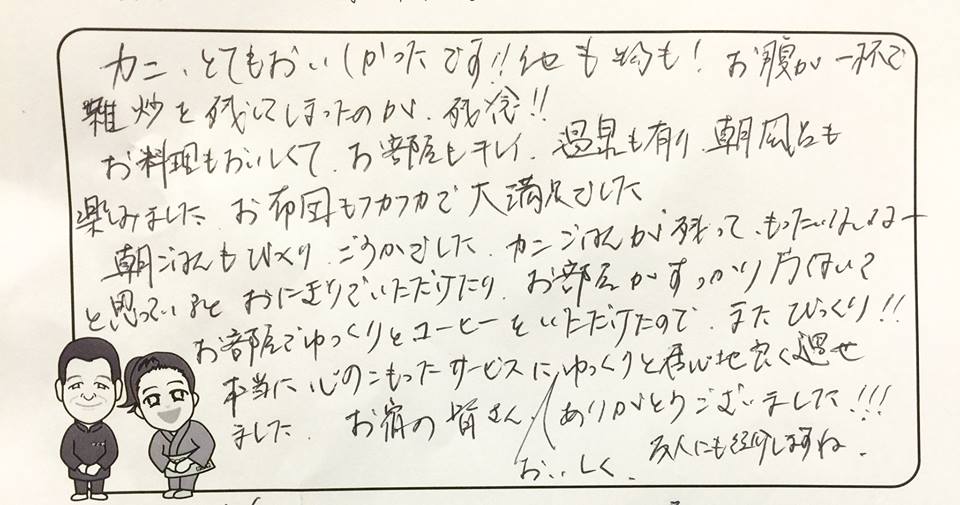 カニ、とてもおいしかったです!!他も物も! お腹が一杯で
雑炊を残してしまったのが、残念!!
お料理もおいしくて、お部屋もキレイ、温泉も有り、朝風呂も
楽しみました、お布団もフカフカで大満足でした
朝ごはんもびっくり、ごうかでした、カニごはんが残って、もったいないなー
と思っていると おにぎりでいただけたり、お部屋がすっかり片づいてて
お部屋でゆっくりとコーヒーをいただけたので、またびっくり!!
本当に心のこもったサービスにゆっくりと居心地良く過せ
ました、お宿の皆さん ありがとうございました!!!
おいしく、 友人にも紹介しますね、